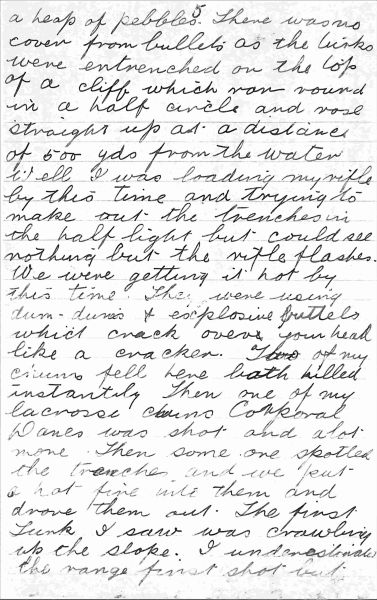 5
a heap of pebbles. There was no
cover from bullets as the turks
were entrenched on the top
of a cliff which ran round
in a half circle and rose
straight up at a distance
of 500 yds from the water
Well I was loading my rifle
by this time and trying to
make out the trenches in
the half light but could see
nothing but the rifle flashes.
We were getting it hot by
this time. They were using
dum-dums & explosive bullets
which crack over your head
like a cracker. Two of my
chums fell here both killed
instantly Then one of my
lacrosse chums Corporal
was shot and alot
more. Then some one spotted
the trenches and we put
a hot fire into them and
drove them out. The first
Turk I saw was crawling
up the slope. I underestimated
the range first shot but